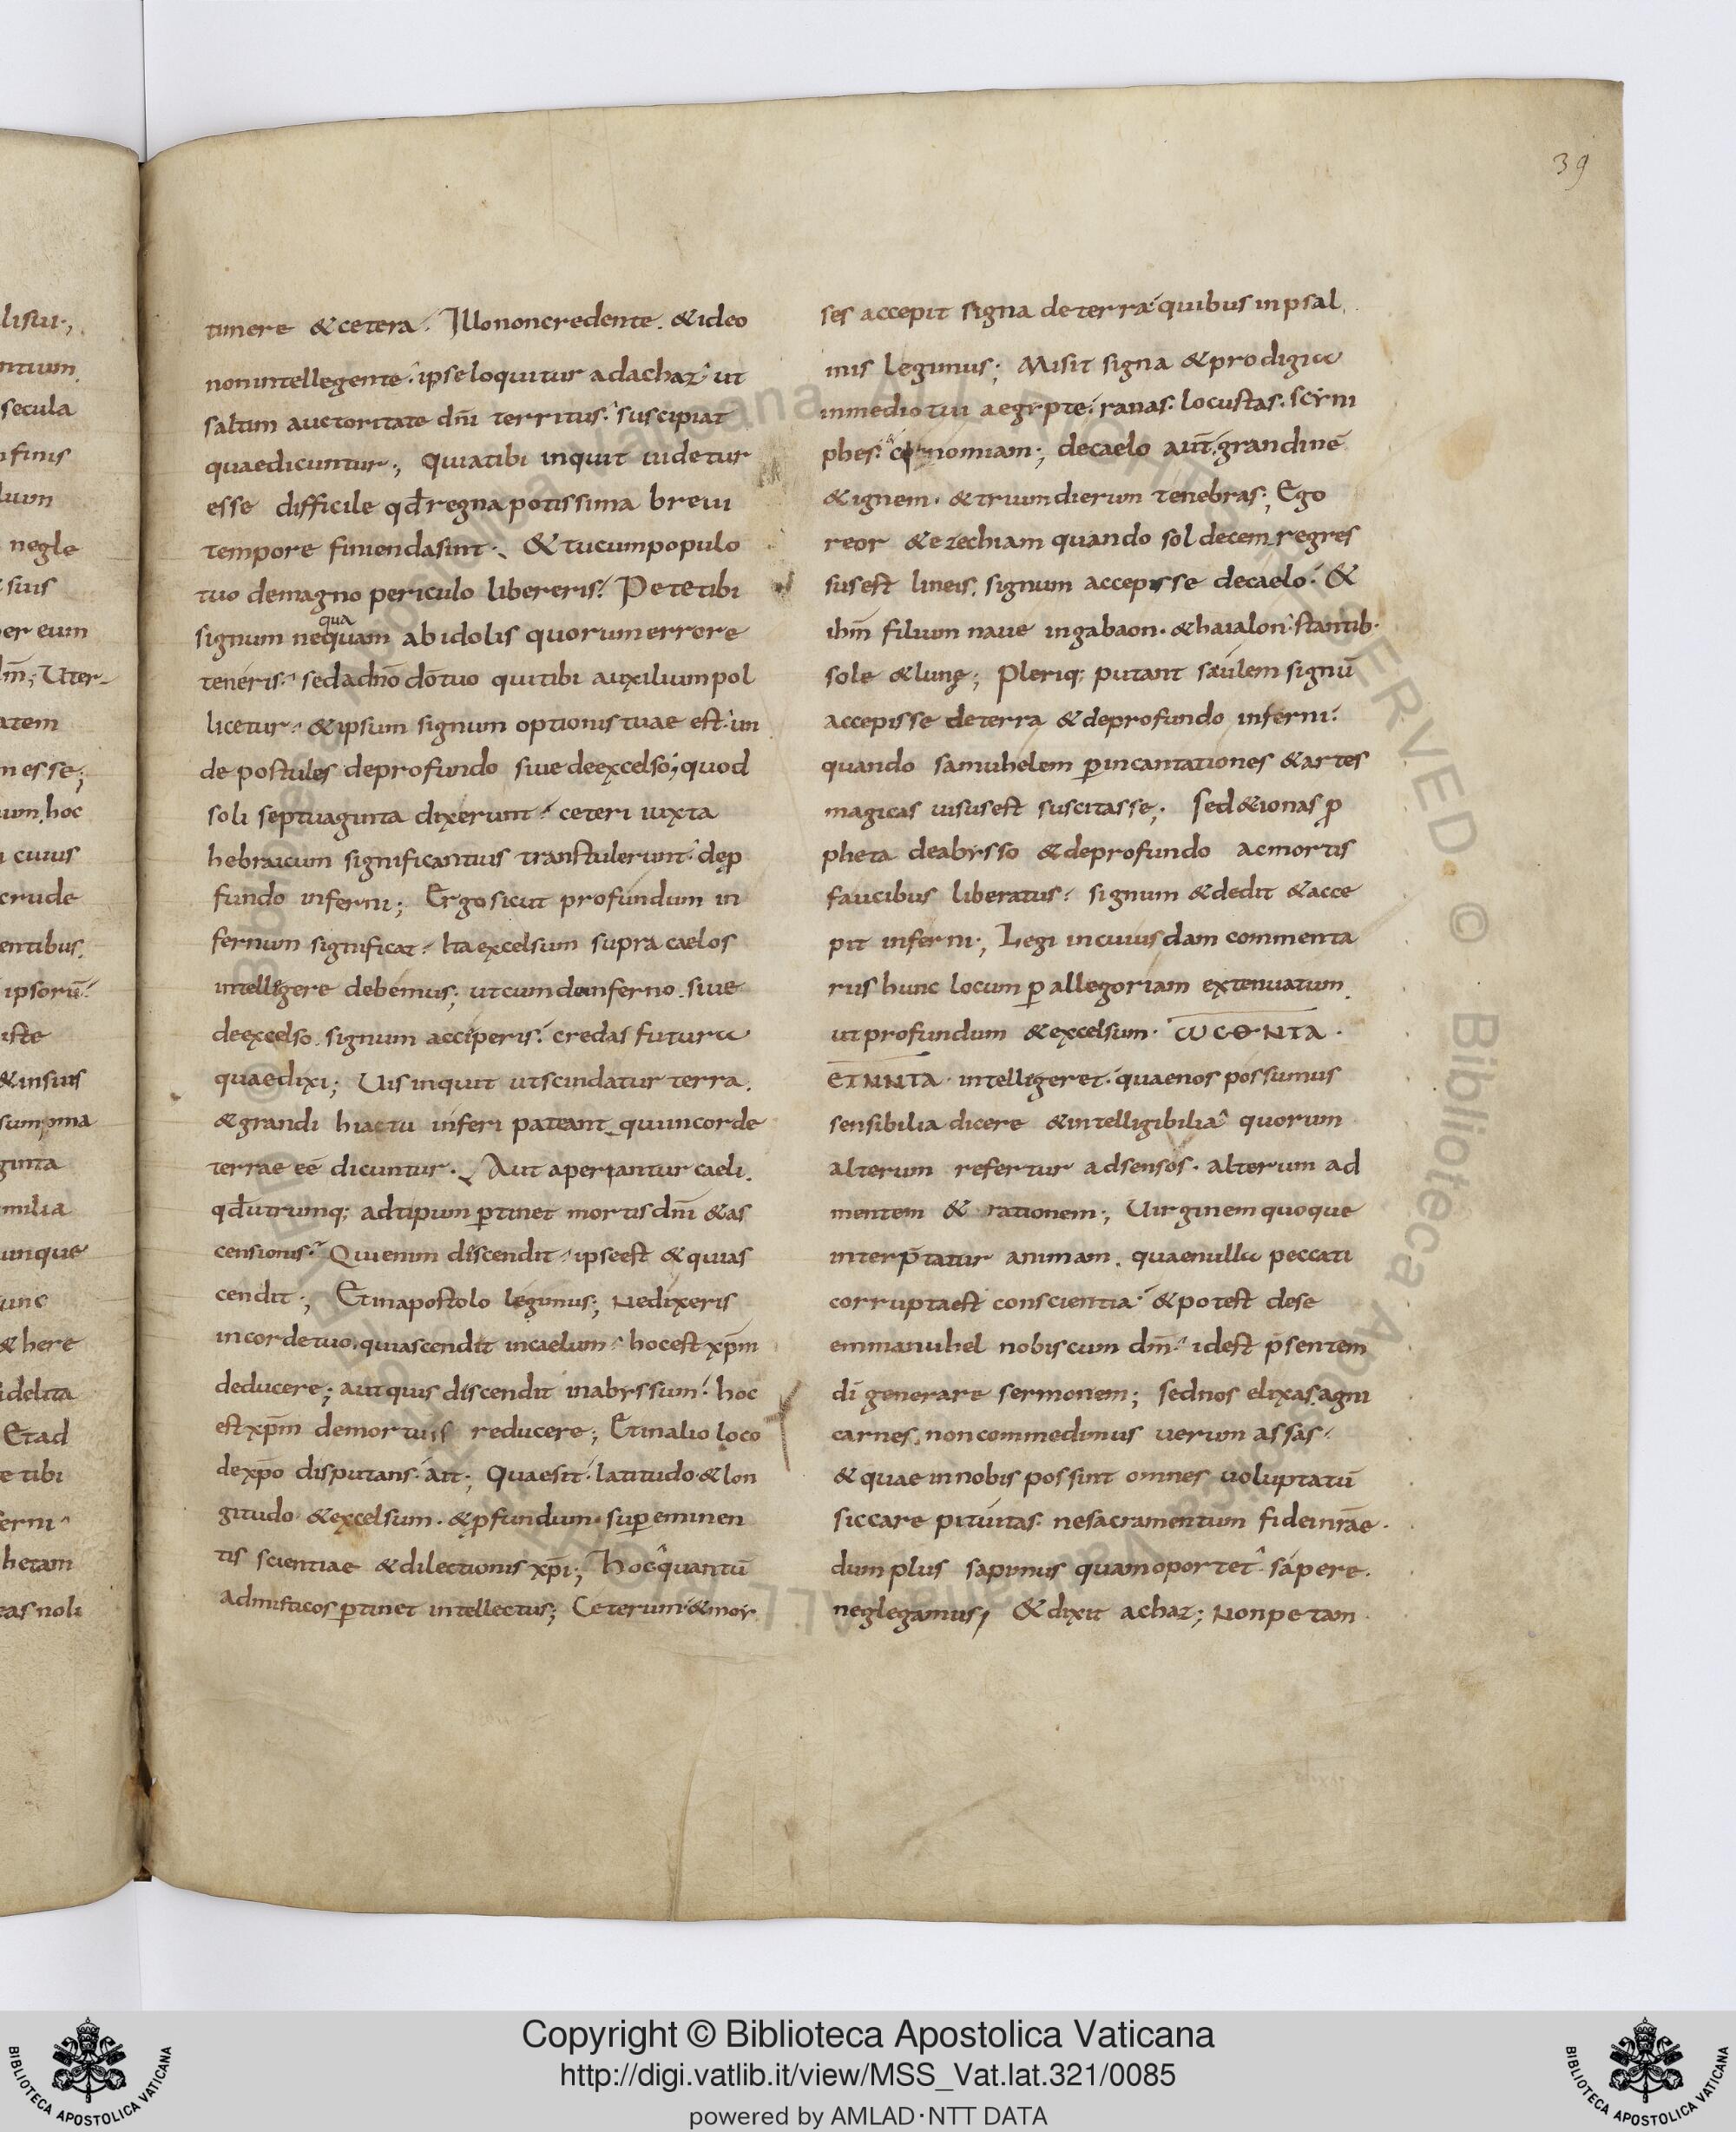 39
timere & cetera. Illo non credente. & ideo
non intellegente. ipse loquitur ad achaz. ut
saltim auctoritate dn̄i territus. suscipiat
quae dicuntur; Quia tibi inquit uidetur
esse difficile qđ regna potissima breui
tempore finienda sint. & tu cum populo
tuo de magno periculo libereris. Pete tibi
qua
signum nequam ab idolis quorum errore
teneris. sed a dn̄o dō tuo qui tibi auxilium pol
licetur. & ipsum signum optionis tuae est. un
de postules de profundo siue de excelso; quod
soli septuaginta dixerunt. ceteri iuxta
hebraicum significantius transtulerunt. de ꝓ
fundo inferni; Ergo sicut profundum in
fernum significat. Ita excelsum supra caelos
intellegere debemus; ut cum de inferno. siue
de excelso. signum acciperis. credas futura
quae dixi; Uis inquit ut scindatur terra.
& grandi hiactu inferi pateant qui in corde
terrae eē dicuntur. Aut aperiantur caeli.
qđ utrumq; ad tipum ꝑtinet mortis dn̄i & as
censionis. Qui enim discendit. ipse est & qui as
cendit; Et in apostolo legimus; Ne dixeris
in corde tuo. quis ascendit in caelum. hoc est xp̄m
deducere; aut quis discendit in abyssum. hoc
est xp̄m de mortuis reducere; Et in alio loco
de xp̄o disputans. ait; Quae sit. latitudo & lon
gitudo & excelsum. & ꝓfundum. suꝑ eminen
tis scientiae & dilectionis xp̄i; Hoc quantū
ad misticos ꝑtinet intellectus; Ceterum & moy
ses accepit signa de terra quibus in psal
mis legimus; Misit signa & prodigia
in medio tui aegypte. ranas. locustas. scyni
phes. cynomiam; de caelo aut̄. grandinē
& ignem. & trium dierum tenebras; Ego
reor & ezechiam quando sol decem regres
sus est lineis. signum accepisse de caelo. &
ihm̄ filium naue in gabaon. & haialon. stantib·
sole & lunę; Pleriq; putant saulem signū
accepisse de terra & de profundo inferni.
quando samuhelem ꝑ incantationes & artes
magicas uisus est suscitasse; Sed & ionas ꝓ
pheta de abysso & de profundo ac mortis
faucibus liberatus. signum & dedit & acce
pit inferni; Legi in cuiusdam commenta
riis hunc locum ꝑ allegoriam extenuatum.
ut profundum & excelsum. ωCΘNTA.
ETNNTA. intelligeret. quae nos possumus
sensibilia dicere & intelligibilia quorum
alterum refertur ad sensos. alterum ad
mentem & rationem; Uirginem quoque
interp̄tatur animam. quae nulla peccati
corrupta est conscientia. & potest de se
emmanuhel nobiscum dm̄. id est p̄sentem
dī generare sermonem; sed nos elixas agni
carnes. non commedimus uerum assas.
& quae in nobis possint omnes uoluptatū
siccare pituitas. ne sacramentum fidei nr̄ae.
dum plus sapimus quam oportet. sapere.
neglegamus; & dixit achaz; Non petam
lisui;
ntium
secula
finis
negle
suis
er eum
atem
m esse;
um. hoc
cuius
crude
entibus.
ipsorū.
iste
& in suis
ginta
milia
unque
& here
Et ad
e tibi
erni
hetam
as noli
Copyright © Biblioteca Apostolica Vaticana
http://digi.vatlib.it/view/MSS_Vat.lat.321/0085
powered by AMLAD·NTT DATA
BIBLIOTECA APOSTOLICA VATICANA
BIBLIOTECA APOSTOLICA VATICANA